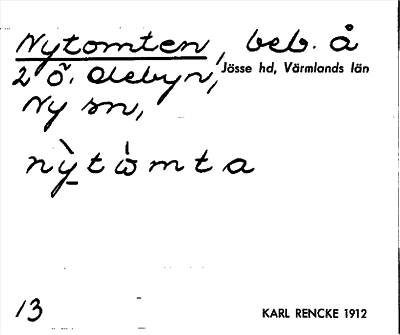 Nytomten, beb. å
Jösse hd, Värmlands län
2 Ö. Deleby n,
Ny sn,
nỳ̠tὼmta
13
KARL RENCKE 1912